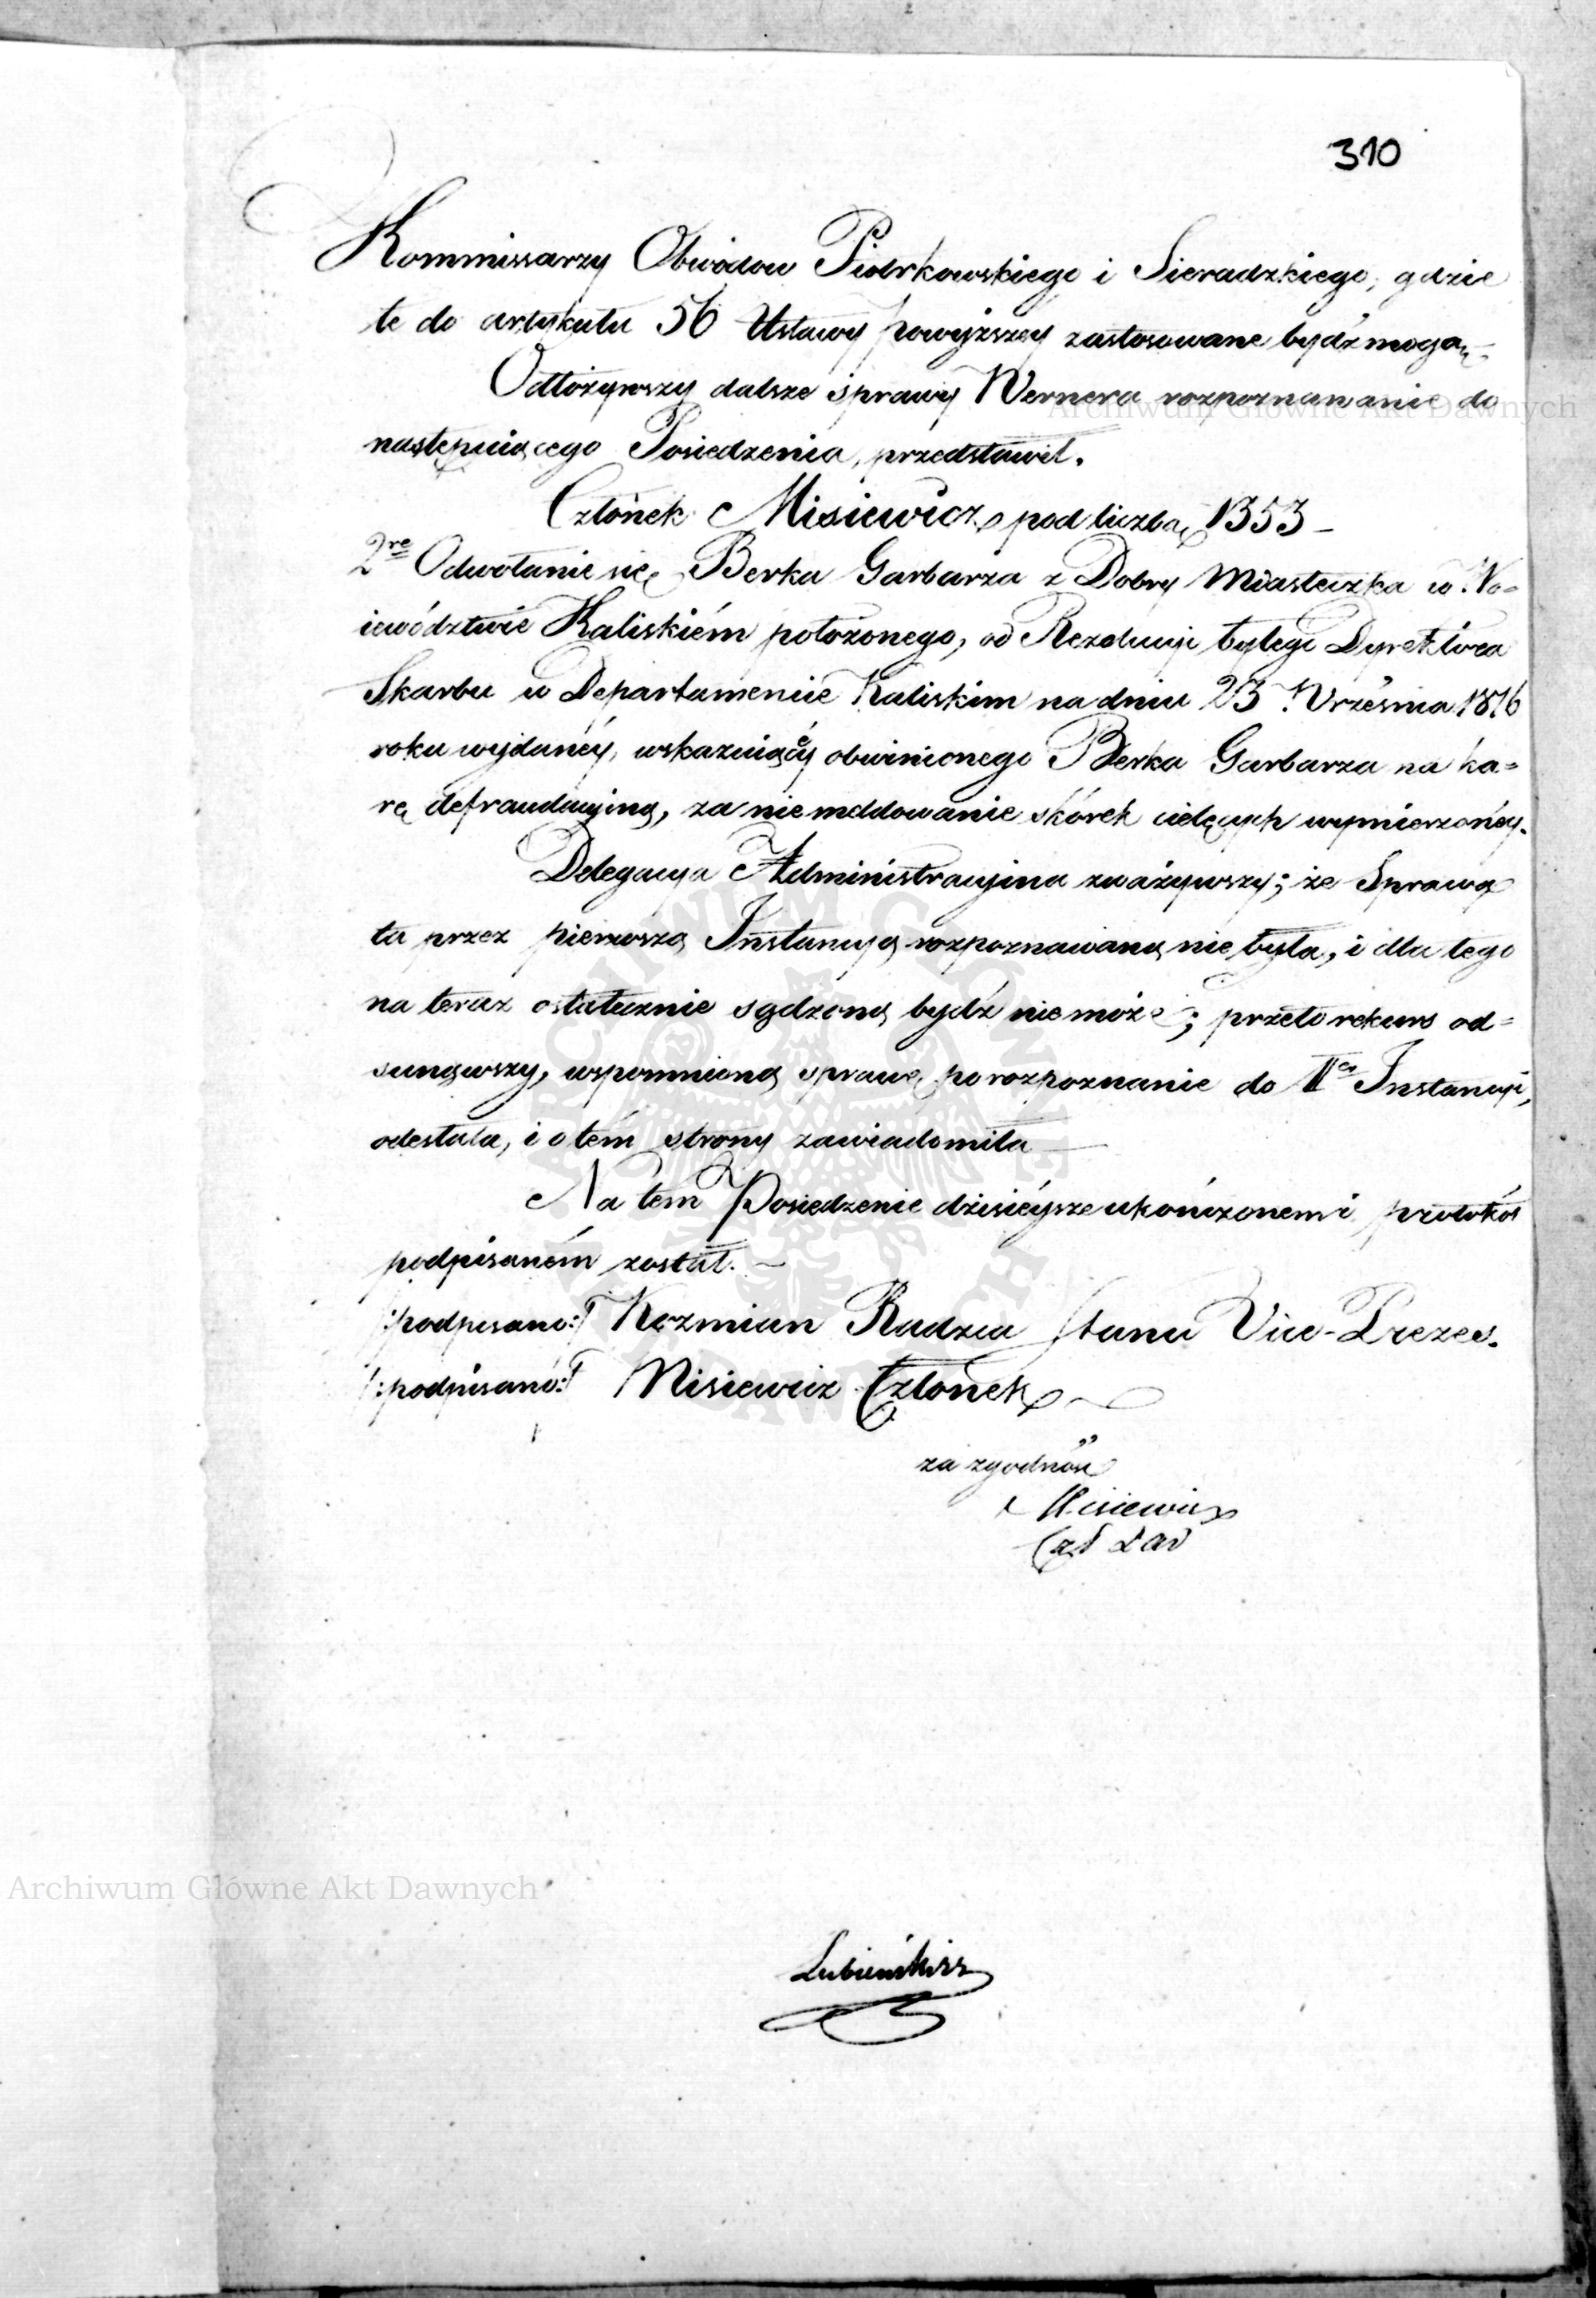 310
Kommissarzy Obwodow Piotrkowskiego i Sieradzkiego, gdzie
te do artykułu 56 Ustawy powyższey zastosowane bydź mogą.
Odłożywszy dalsze sprawy Wernera rozpoznawanie do
Archiwum Główne Akt Dawnych
następuiącego Posiedzenia, przedstawił.
Członek Misiewicz pod liczbą 1353 –
2re Odwołanie się Berka Garbarza z Dobry Miasteczka w Wo=
iewództwie Kaliskiém położonego, od Rezolucyi byłego Dyrektora
Skarbu w Departamencie Kaliskim na dniu 23 Września 1816
roku wydanéy, wskazuiącéy obwinionego Berka Garbarza na ka=
rę defraudacyiną, za niemeldowanie skórek cielęcych wymierzonéy.
Delegacya Administracyina zważywszy; że Sprawa
ta przez pierwszą Instancyą rozpoznawaną nie była, i dla tego
na teraz ostatecznie sądzoną bydź nie może; przeto rekurs od=
sunąwszy, wspomnioną sprawę po rozpoznanie do Iey Instancyi,
odesłała, i o tém strony zawiadomiła —
Na tem Posiedzenie dzisieysze ukończonem i protokół
podpisaném został. —
/:podpisano:/ Kozmian Radzca Stanu Vice-Prezes.
/:podpisano:/ Misiewicz Członek
za zgodność
Misiewicz
Czł
Archiwum Główne Akt Dawnych
Lubieński
ARCHIWUM GŁÓWNE AKT DAWNYCH